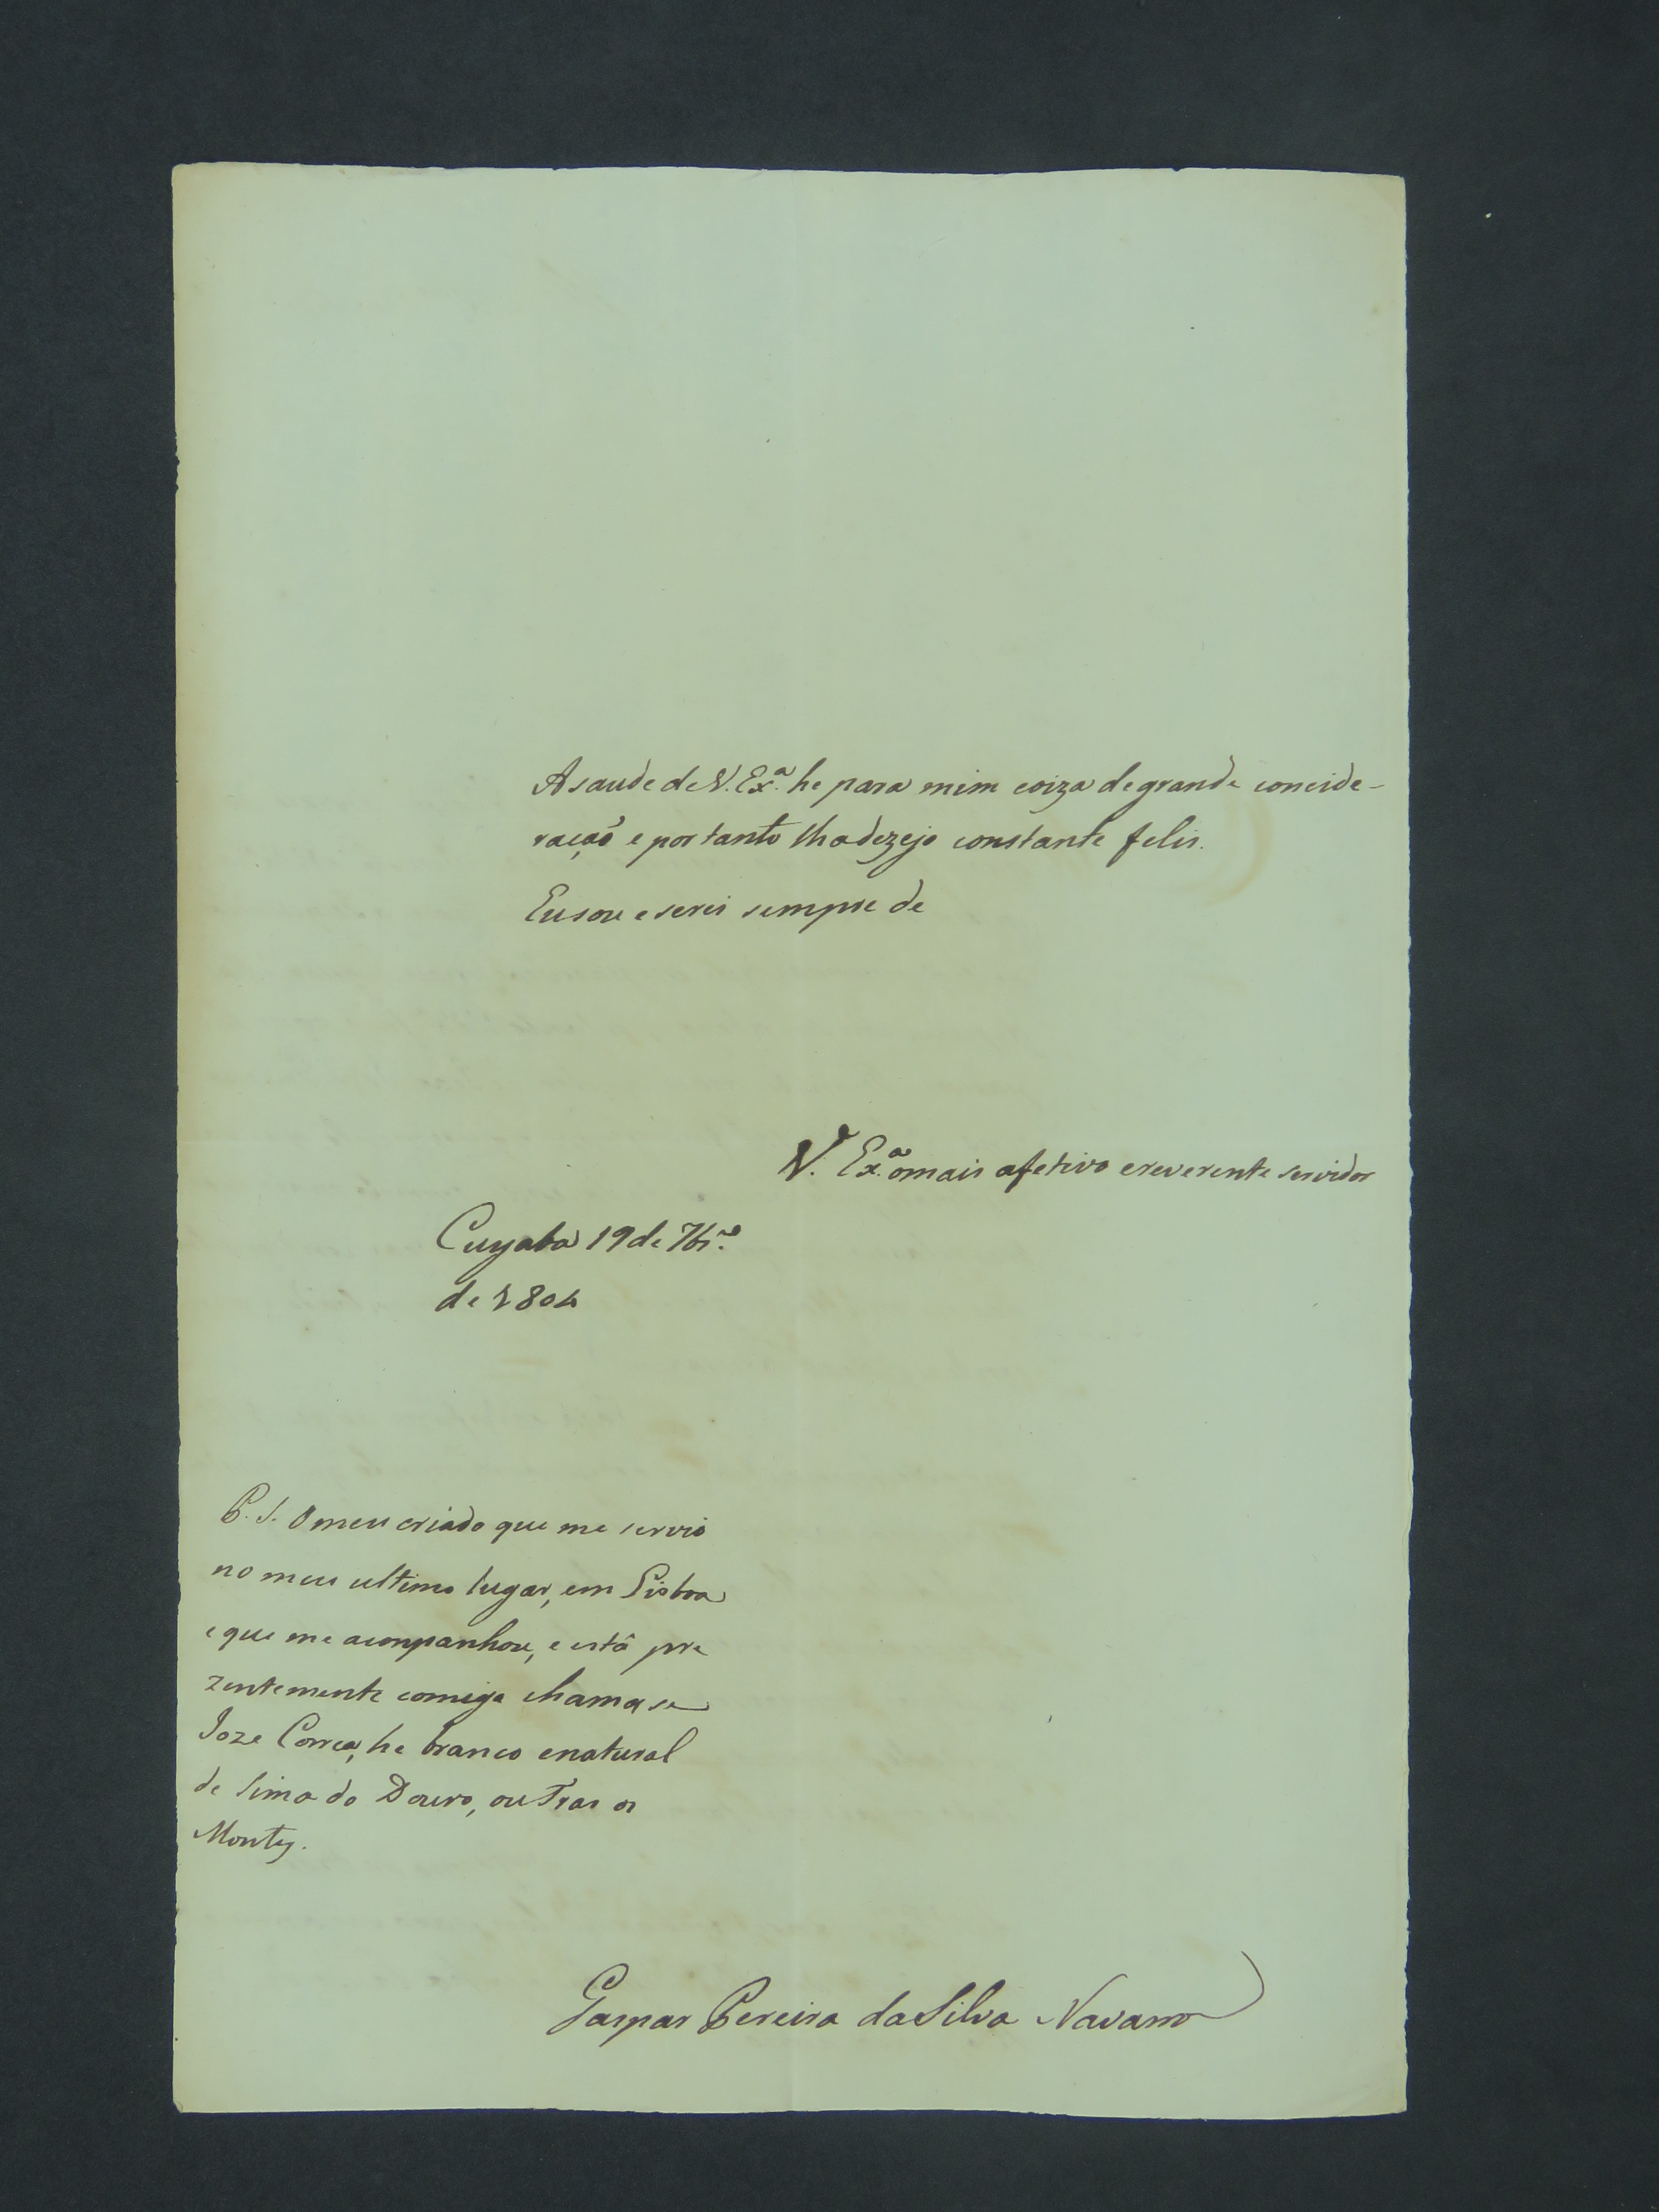 A saude de V. Ex.ª he para mim coiza de grande concide-
ração e portanto lha dezejo constante felis.
Eu sou e serei sempre de
V. Ex.ª o mais afetivo e reverente servidor
Cuyaba 19 de 7br.º
de 1804
P. S. O meu criado que me servio
no meu ultimo lugar, em Lisboa
e que me acompanhou, e está pre
zentemente comigo chama se
Joze Correa, he branco e natural
de Sima do Douro, ou Tras os
Montes.
Gaspar Pereira da Silva Navarro